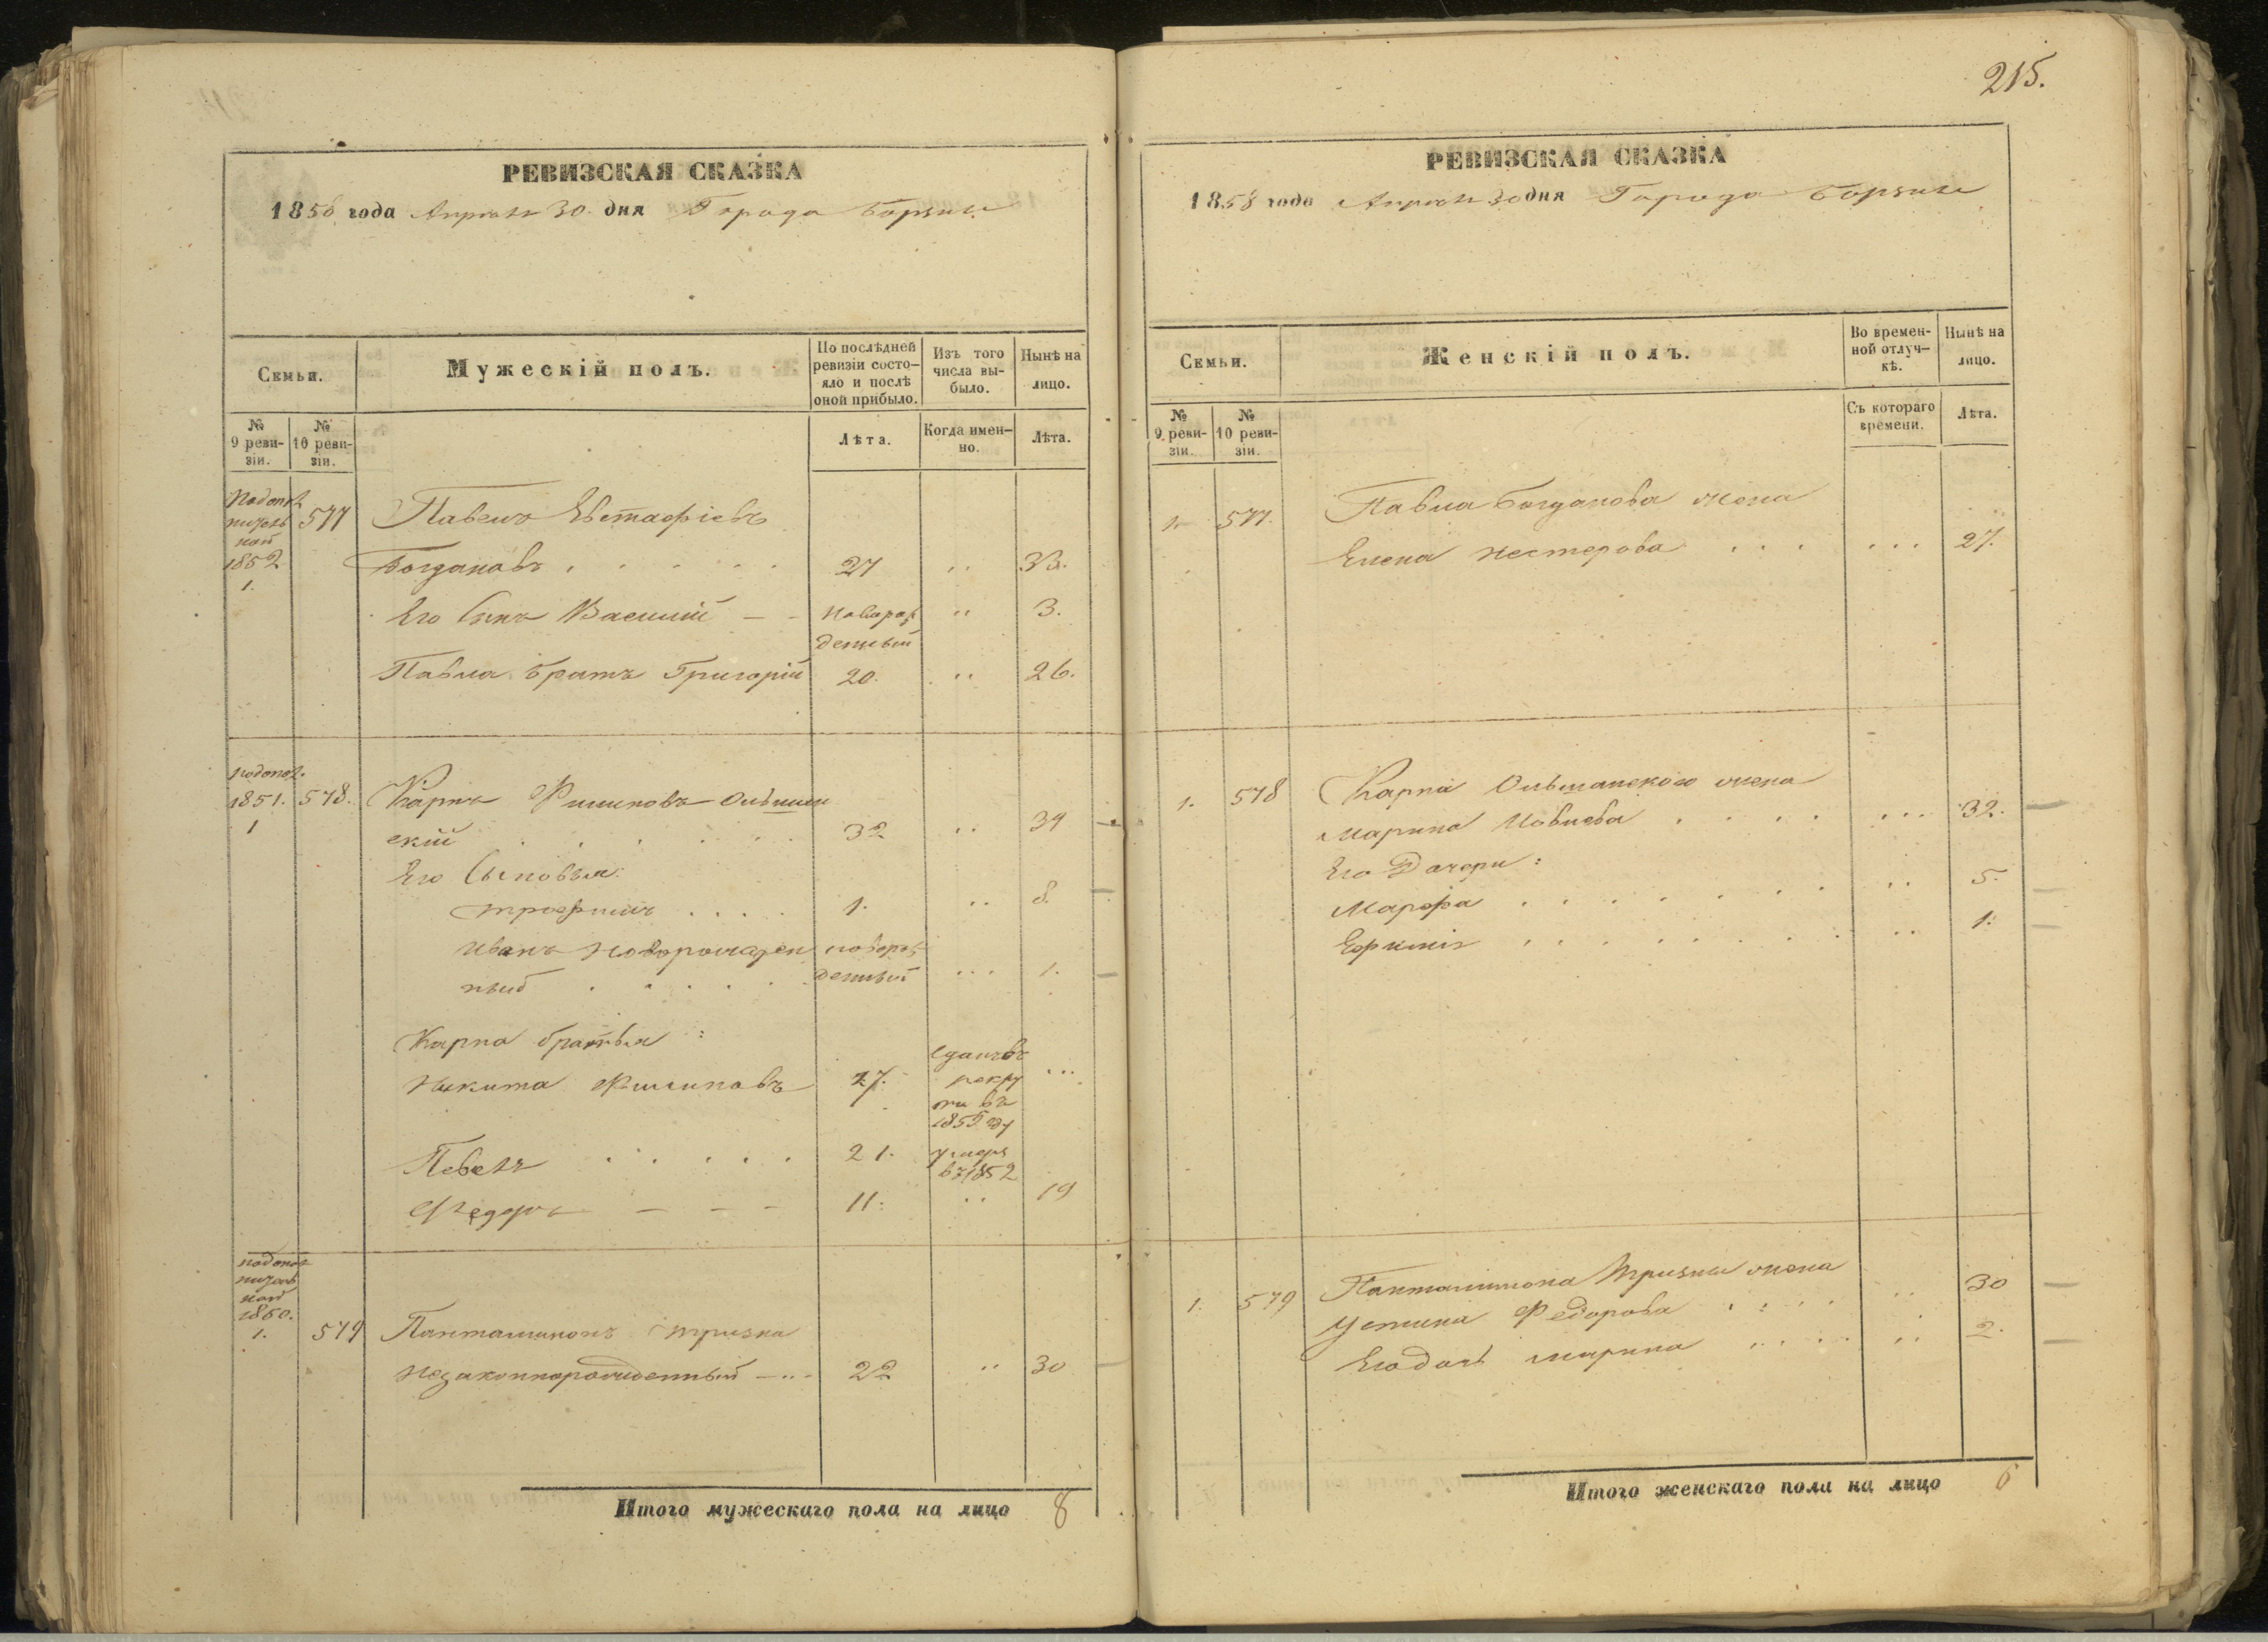 РЕВИЗСКАЯ СКАЗКА
1858 года Апреля 30 дня Города Борзны
Семьи.
Мужескій полъ.
По послѣдней ревизіи состояло и послѣ оной прибыло.
Изъ того числа выбыло.
Нынѣ на лицо.
№ 9 ревизіи.
№ 10 ревизіи.
Лѣта.
Когда именно.
Лѣта.
1852
1.
577
Павелъ Евстафіевъ
Богдановъ . . . . . 27 .. 33.
Его Сынъ Василий — - новорож .. 3.
денный
Павла братъ Григорій 20. .. 26.
1851. 578. Карпъ Филиповъ Ольшан
1
скій . . . . . . 32 .. 39
Его Сыновья:
Трофимъ . . . . 1. .. 8.
Иванъ новорожден новорож
ный . . . . . денный ... 1.
Карпа братья :
Никита Филиповъ 27. сданъ въ ...
рекру
ты въ
1855 году
Павелъ . . . . . 21. умеръ
въ 1852
Федоръ — — — 11: .. 19
1850.
1. 579 Панталимонъ Тризна
незаконнорожденный 22 .. 30
Итого мужескаго пола на лицо 8
215.
РЕВИЗСКАЯ СКАЗКА
1858 года Апреля 30 дня Города Борзны
Семьи.
Женскій полъ.
Во временной отлучкѣ.
Нынѣ на лицо.
№ 9 ревизіи.
№ 10 ревизіи.
Съ котораго времени.
Лѣта.
1. 577. Павла Богданова жена
Елена Нестерова . . . ... 27.
1. 578 Карпа Ольшанского жена
Марина Иовлева . . . . ... 32.
Его Дочери :
Марфа . . . . . . . .. 5.
Ефимія . . . . . . . .. 1.
1. 579 Панталимона Тризны жена
Устина Федорова . . . . .. 30
Его дочь Марина . . . . .. 2.
Итого женскаго пола на лицо 6